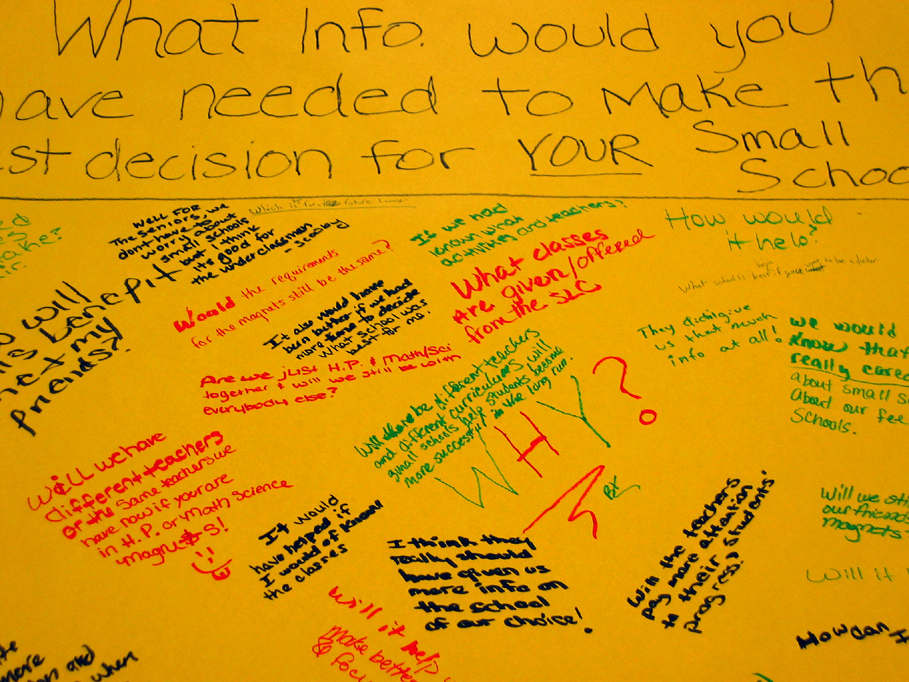 What Info. would you
have needed to Make the
est decision for YOUR Small
School
WELL FOR
The seniors, we
dont have to
worry about
small schools
but I think
its good for
the underclassmen
Would the requirements
for the magnets still be the same?
It also would have
been better if we had
more time to decide
What school was
best for me.
If we had
known what
activities and teachers?
What classes
Are given/offered
from the SLC
How would
it help?
They didn't give
us that much
info at all!
we would
know that
really care
about small s
about our fee
Schools.
will
benefit
my
friends?
Are we just H.P. & Math/Sci
together & will we still be with
everybody else?
Will there be different teachers
and different curriculums will
small schools help students become
more successful in the long run.
WHY?
Will we have
different teachers
or the same teachers we
have now if you are
in H.P. or Math Science
magnets!
It would
have helped if
I would of known
the classes
I think they
really should
have given us
more info on
the school
of our choice!
Will the teachers
pay more attention
to their students'
progress?
Will we sti
our friends
magnets
Will it
will it help
make better
& foc
How can I
more
and
when